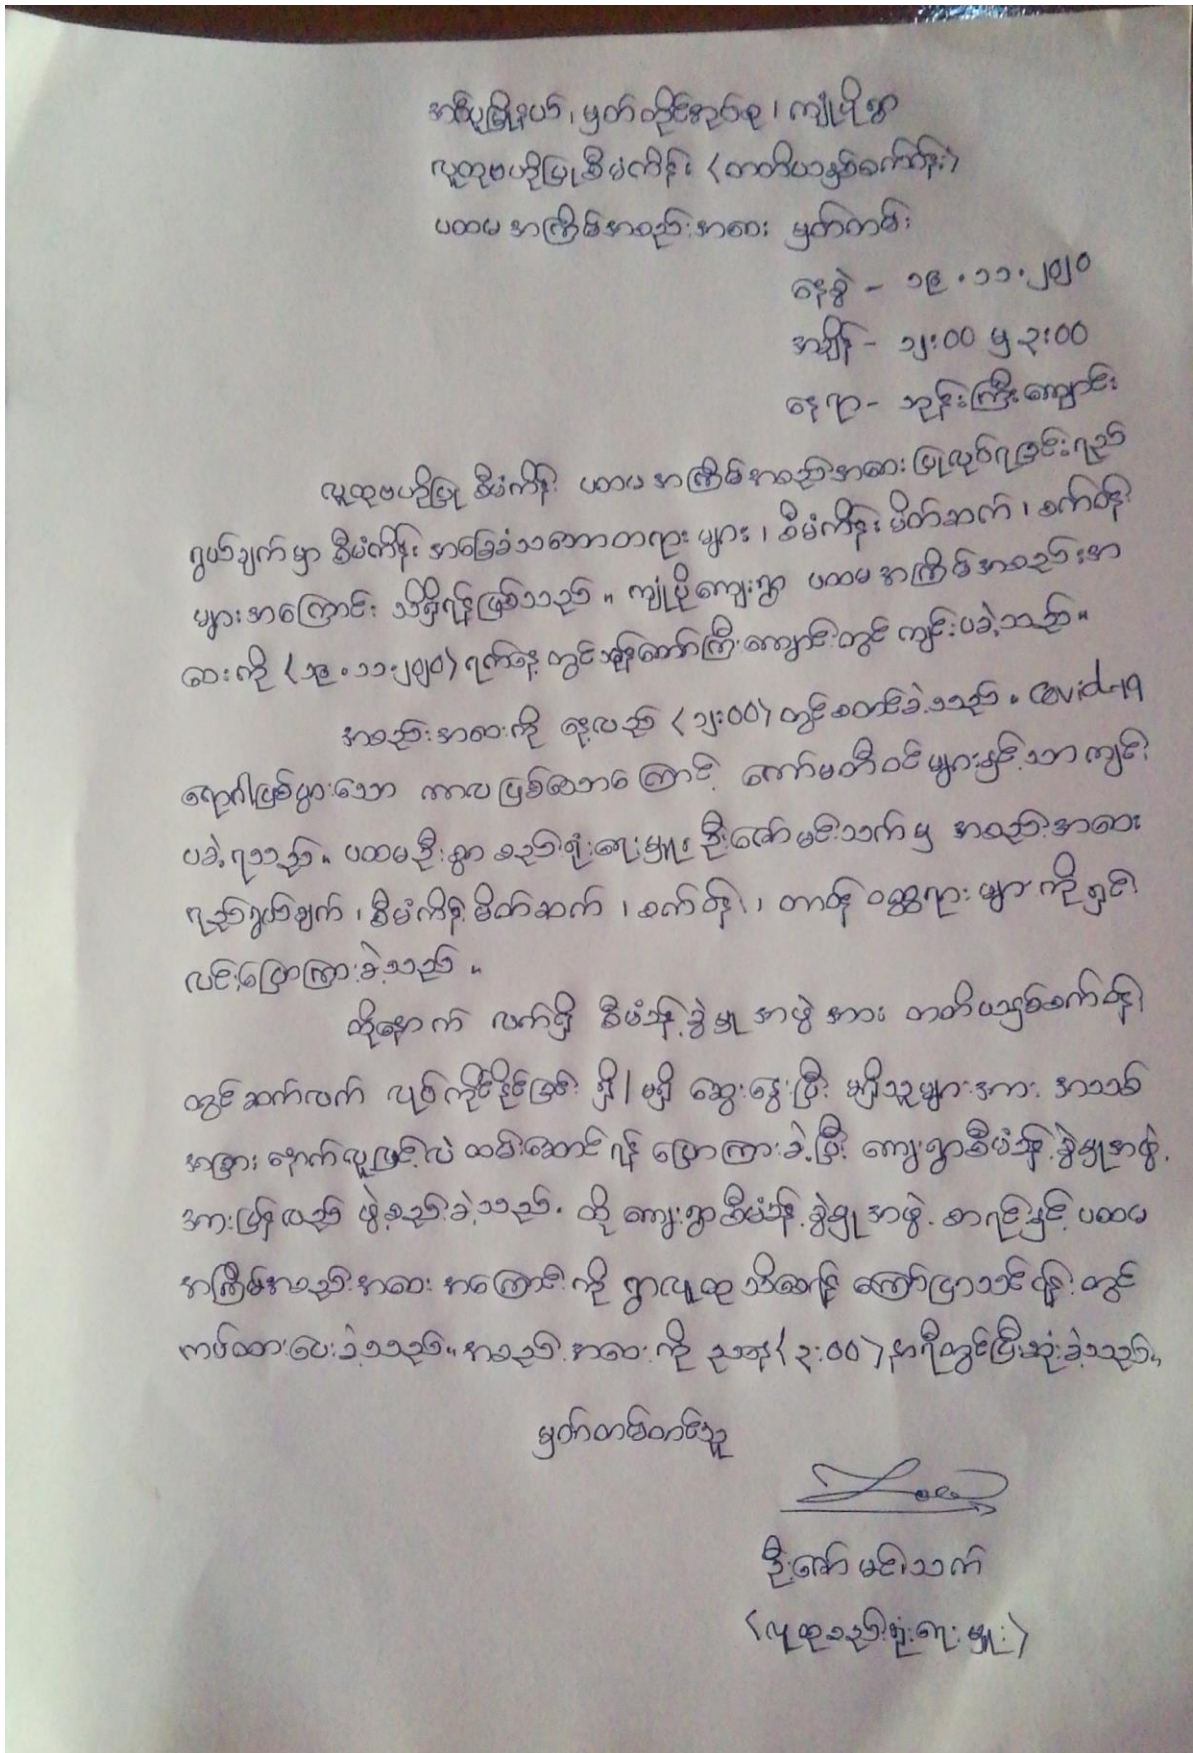 အင်္ဂပူမြို့နယ်၊ မှတ်တိုင်အုပ်စု၊ ကျုံပိုရွာ
လူထုဗဟိုပြုစီမံကိန်း (တတိယနှစ်စက်ဝန်း)
ပထမ အကြိမ်အစည်းအဝေး မှတ်တမ်း
နေ့စွဲ - ၁၉.၁၁.၂၀၂၀
အချိန် - ၁၂:၀၀ မှ ၃:၀၀
နေရာ - ဘုန်းကြီးကျောင်း
လူထုဗဟိုပြု စီမံကိန်း ပထမ အကြိမ် အစည်းအဝေး ပြုလုပ်ရခြင်းရည်
ရွယ်ချက်မှာ စီမံကိန်း အခြေခံသဘောတရား များ၊ စီမံကိန်း မိတ်ဆက်၊ စက်ဝန်း
များအကြောင်း သိရှိရန်ဖြစ်သည်။ ကျုံပိုကျေးရွာ ပထမ အကြိမ်အစည်းအ
ဝေးကို (၁၉.၁၁.၂၀၂၀) ရက်နေ့ တွင်ဘုန်းတော်ကြီးကျောင်းတွင် ကျင်းပခဲ့သည်။
အစည်းအဝေးကို နေ့လည် (၁၂:၀၀) တွင်စတင်ခဲ့သည်။ Covid-19
ရောဂါဖြစ်ပွားသော ကာလ ဖြစ်သောကြောင့် ကော်မတီဝင်များနှင့်သာ ကျင်း
ပခဲ့ရသည်။ ပထမဦးစွာ စည်းရုံးရေးမှူး ဦးဇော်မင်းသက်မှ အစည်းအဝေး
ရည်ရွယ်ချက်၊ စီမံကိန်းမိတ်ဆက်၊ စက်ဝန်း၊ တာဝန် ဝတ္တရား များ ကို ရှင်း
လင်းပြောကြားခဲ့သည်။
ထို့နောက် လက်ရှိ စီမံခန့်ခွဲမှု အဖွဲ့အား တတိယနှစ်စက်ဝန်း
တွင် ဆက်လက် လုပ်ကိုင်နိုင်ခြင်း ရှိ/မရှိ ဆွေးနွေးပြီး မရှိသူများအား အသစ်
အခြား နောက်လူဖြင့်လဲ ထမ်းဆောင်ရန် ပြောကြားခဲ့ပြီး ကျေးရွာစီမံခန့်ခွဲမှုအဖွဲ့
အားပြန်လည် ဖွဲ့စည်းခဲ့သည်။ ထို ကျေးရွာစီမံခန့်ခွဲမှု အဖွဲ့ စာရင်းနှင့် ပထမ
အကြိမ်အစည်းအဝေး အကြောင်းကို ရွာလူထု သိစေရန် ကြော်ငြာသင်ပုန်းတွင်
ကပ်ထားပေးခဲ့သည်။ အစည်းအဝေးကို ညနေ (၃:၀၀) နာရီတွင်ပြီးဆုံးခဲ့သည်။
မှတ်တမ်းတင်သူ
ဦးဇော်မင်းသက်
(လူထုစည်းရုံးရေးမှူး)